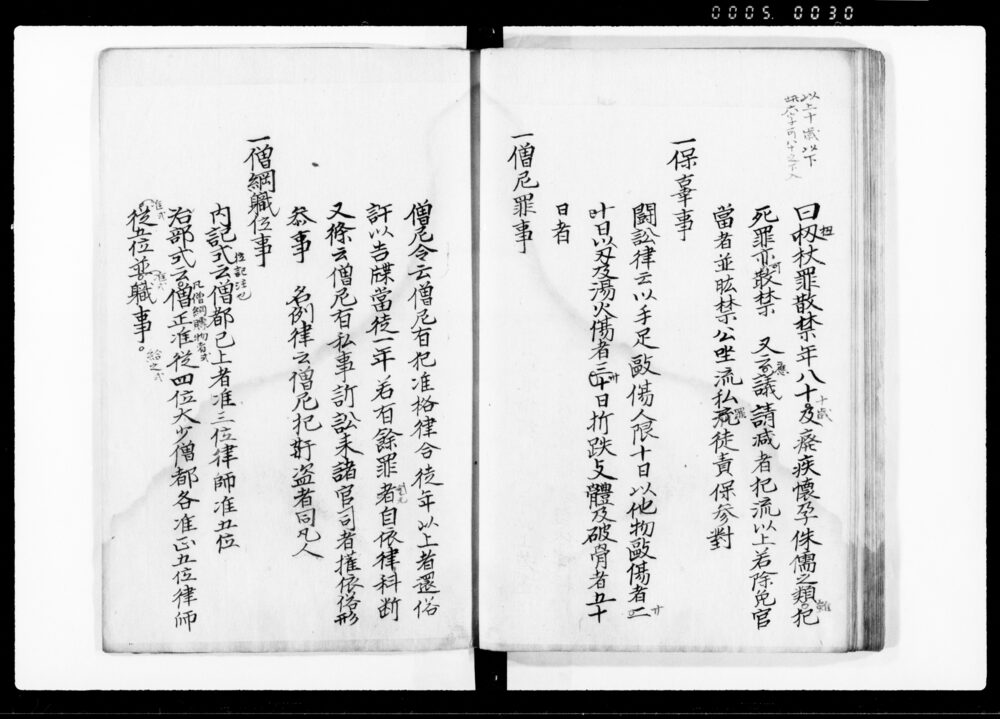 0005. 0030
以上十歳以下
曰杻杖罪散禁年八十及癈疾懐孕侏儒之類犯
死罪亦散禁 又云議請減者犯流以上若除免官
當者並肱禁公坐流私流徒責保参對
一保辜事
闘訟律云以手足毆傷人限十日以他物毆傷者二
十日以刃及湯火傷者三十日折跌支體及破骨者五十
日者
一僧尼罪事
僧尼令云僧尼有犯准格律合徒年以上者還俗
許以告牒當徒一年若有餘罪者自依律科断
又條云僧尼有私事訴訟来諸官司者権依俗形
参事 名例律云僧尼犯奸盗者同凡人
一僧綱職位事
内記式云僧都已上者准三位律師准五位
治部式云僧正准従四位大少僧都各准正五位律師
従五位并職事。